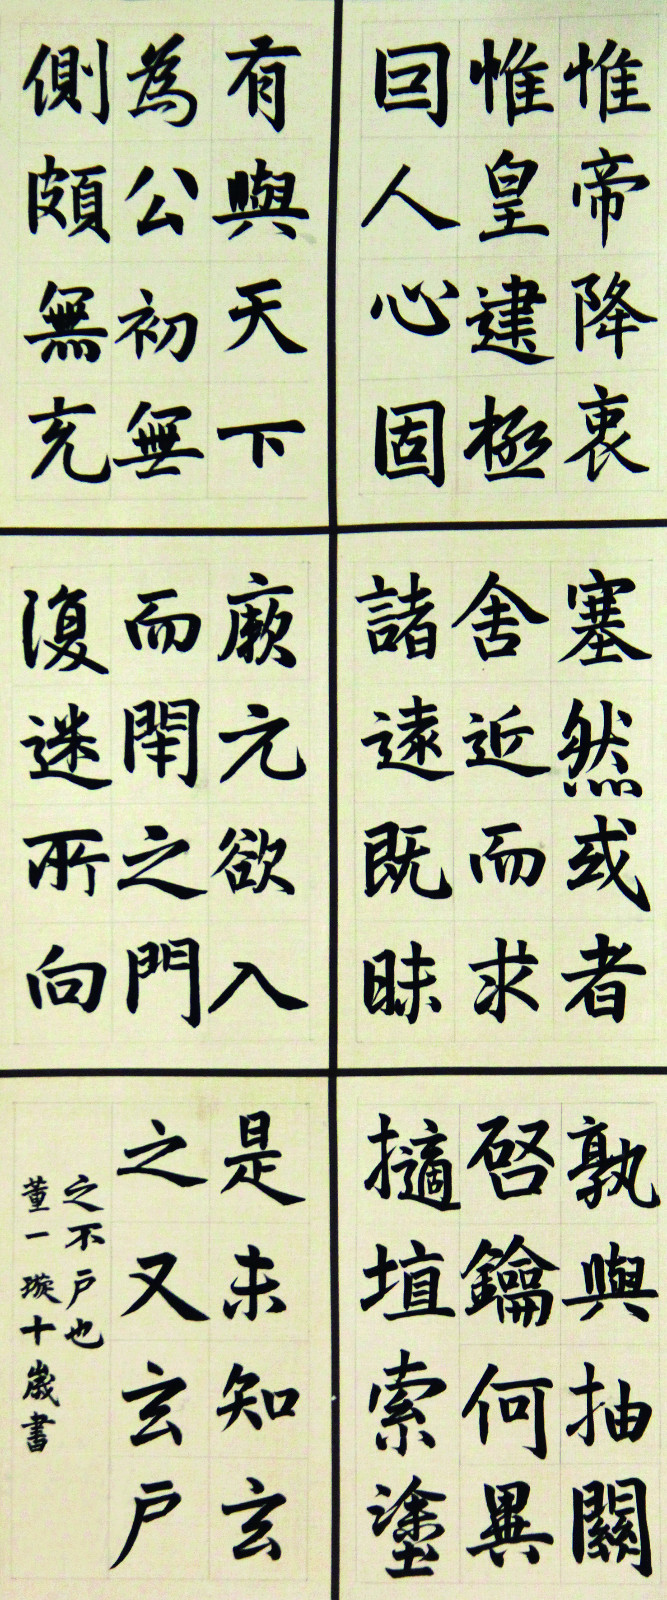 惟帝降衷
惟皇建極
囙人心固
有與天下
為公初無
側頗無充
塞然或者
舍近而求
諸遠既昧
厥元欲入
而閇之門
復迷所向
孰與抽關
啓鑰何異
擿埴索塗
是未知玄
之又玄戶
之不戶也
董一璇十歲書